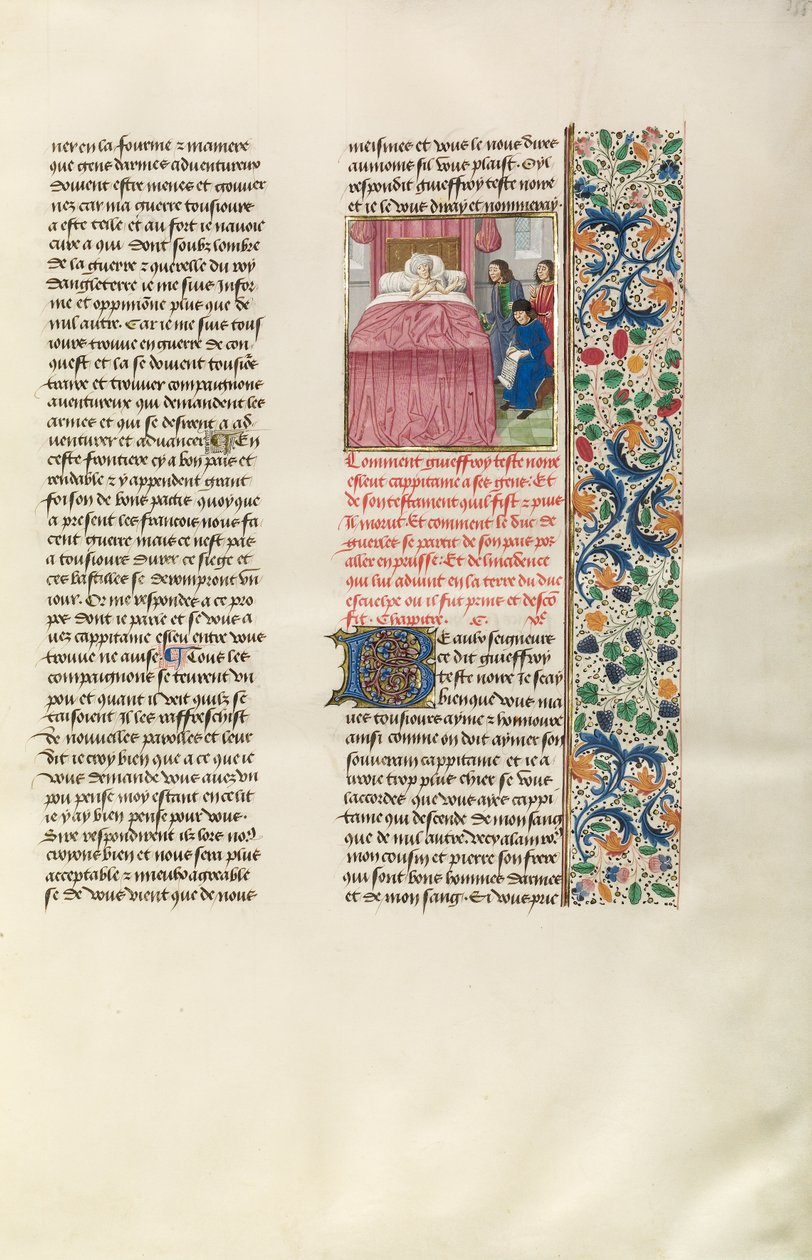 ner en la fourme z maniere
que gens darmes adventureux
doivent estre menes et gouver
nez car ma guerre tousiours
a este telle et au fort ie navoie
cure a qui dont soubz lombre
de la guerre z querelle du roy
dangleterre ie me suis infor
me et oppinione plus que de
nul autre. Car ie me suis tous
iours trouve en guerre de con
quest et la se doivent tousiors
traire et trouver compaignons
aventureux qui demandent les
armes et qui se desirent a ad
venturer et advancer En
ceste frontiere cy a bon pais et
rendable z y appendent grant
foison de bons pactis quoy que
a present les francois nous fa
cent guerre mais ce nest pas
a tousiours durer ce siege et
ces bastilles se derompront un
iour. Or me respondes a ce pro
pos dont ie parle et se vous a
vez cappitaine esleu entre vous
trouve ne avise Tous les
compaignons se teurent un
pou et quant il veit quilz se
taisoient Il les raffreschist
de nouvelles parolles et leur
dit ie croy bien que a ce que ie
vous demande vous avez un
pou pense moy estant en ce lit
ie y ay bien pense pour vous.
Sire respondirent ilz lors nous
croyons bien et nous sera plus
acceptable z mieulx agreable
se de vous vient que de nous
meismes et vous le nous dires
au moins sil vous plaist. Oyl
respondit guieffroy teste noire
et ie le vous diray et nommeray.
Comment guieffroy teste noire
esleut cappitaine a ses gens: Et
de son testament quil fist z puis
Il morut Et comment le duc de
guerles se partit de son pais por
aller en prusse: Et de lincidence
qui lui advint en la terre du duc
esculpe ou il fut prins et desco
fit. Chappitre. C. xv
Beaulx seigneurs
ce dit guieffroy
teste noire Ie scay
bien que vous ma
ves tousiours ayme z honnoure
ainsi comme on doit aymer son
souverain cappitaine et ie a
uroie trop plus chier se vous
laccordes que vous ayes cappi
taine qui descende de mon sang
que de nul autre. vecy alain rou
mon cousin et pierre son frere
qui sont bons hommes darmes
et de mon sang. Si vous prie